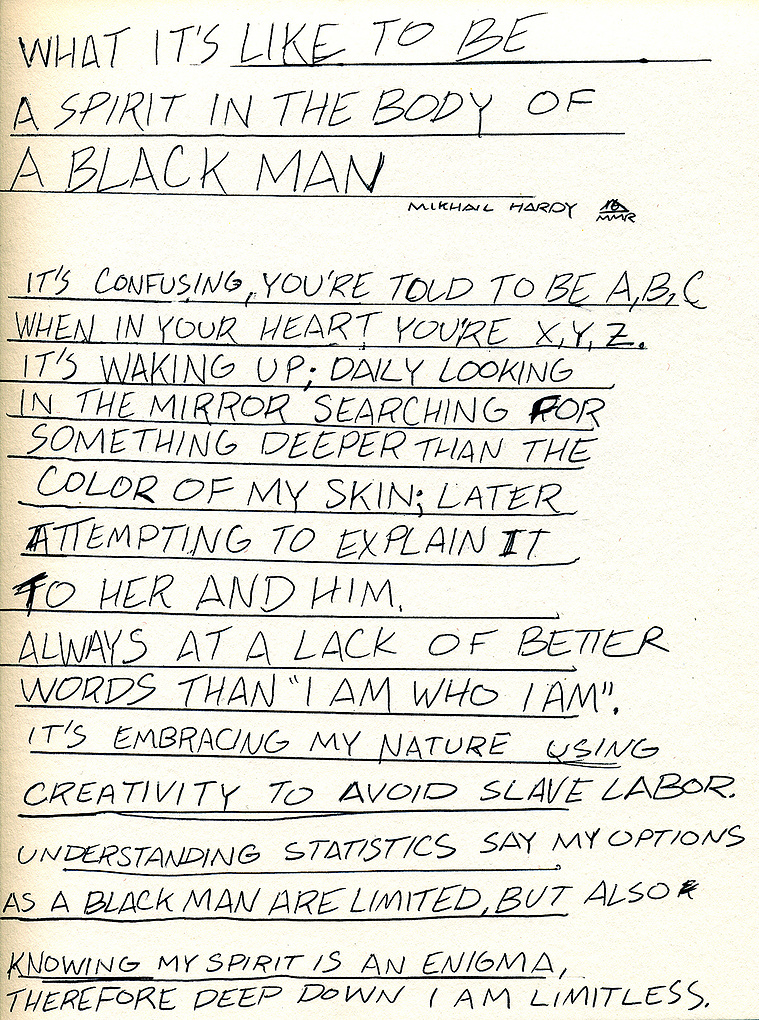 WHAT IT'S LIKE TO BE
A SPIRIT IN THE BODY OF
A BLACK MAN
MIKHAIL HARDY MMR
IT'S CONFUSING, YOU'RE TOLD TO BE A, B, C
WHEN IN YOUR HEART YOU'RE X, Y, Z.
IT'S WAKING UP; DAILY LOOKING
IN THE MIRROR SEARCHING FOR
SOMETHING DEEPER THAN THE
COLOR OF MY SKIN; LATER
ATTEMPTING TO EXPLAIN IT
TO HER AND HIM.
ALWAYS AT A LACK OF BETTER
WORDS THAN "I AM WHO I AM".
IT'S EMBRACING MY NATURE USING
CREATIVITY TO AVOID SLAVE LABOR.
UNDERSTANDING STATISTICS SAY MY OPTIONS
AS A BLACK MAN ARE LIMITED, BUT ALSO
KNOWING MY SPIRIT IS AN ENIGMA,
THEREFORE DEEP DOWN I AM LIMITLESS.